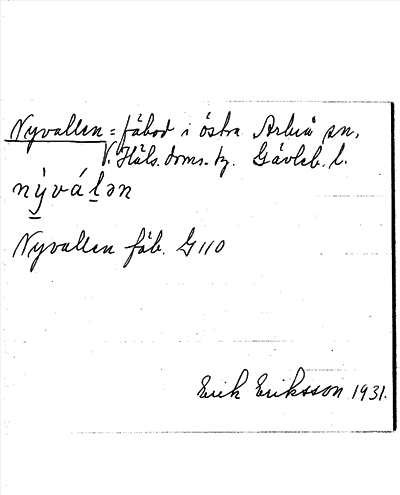 Nyvallen = fäbod i östra Arbrå sn,
V. Häls. doms. tg. Gävleb. l.
nỳválən
Nyvallen fäb. G 110
Erik Eriksson 1931.